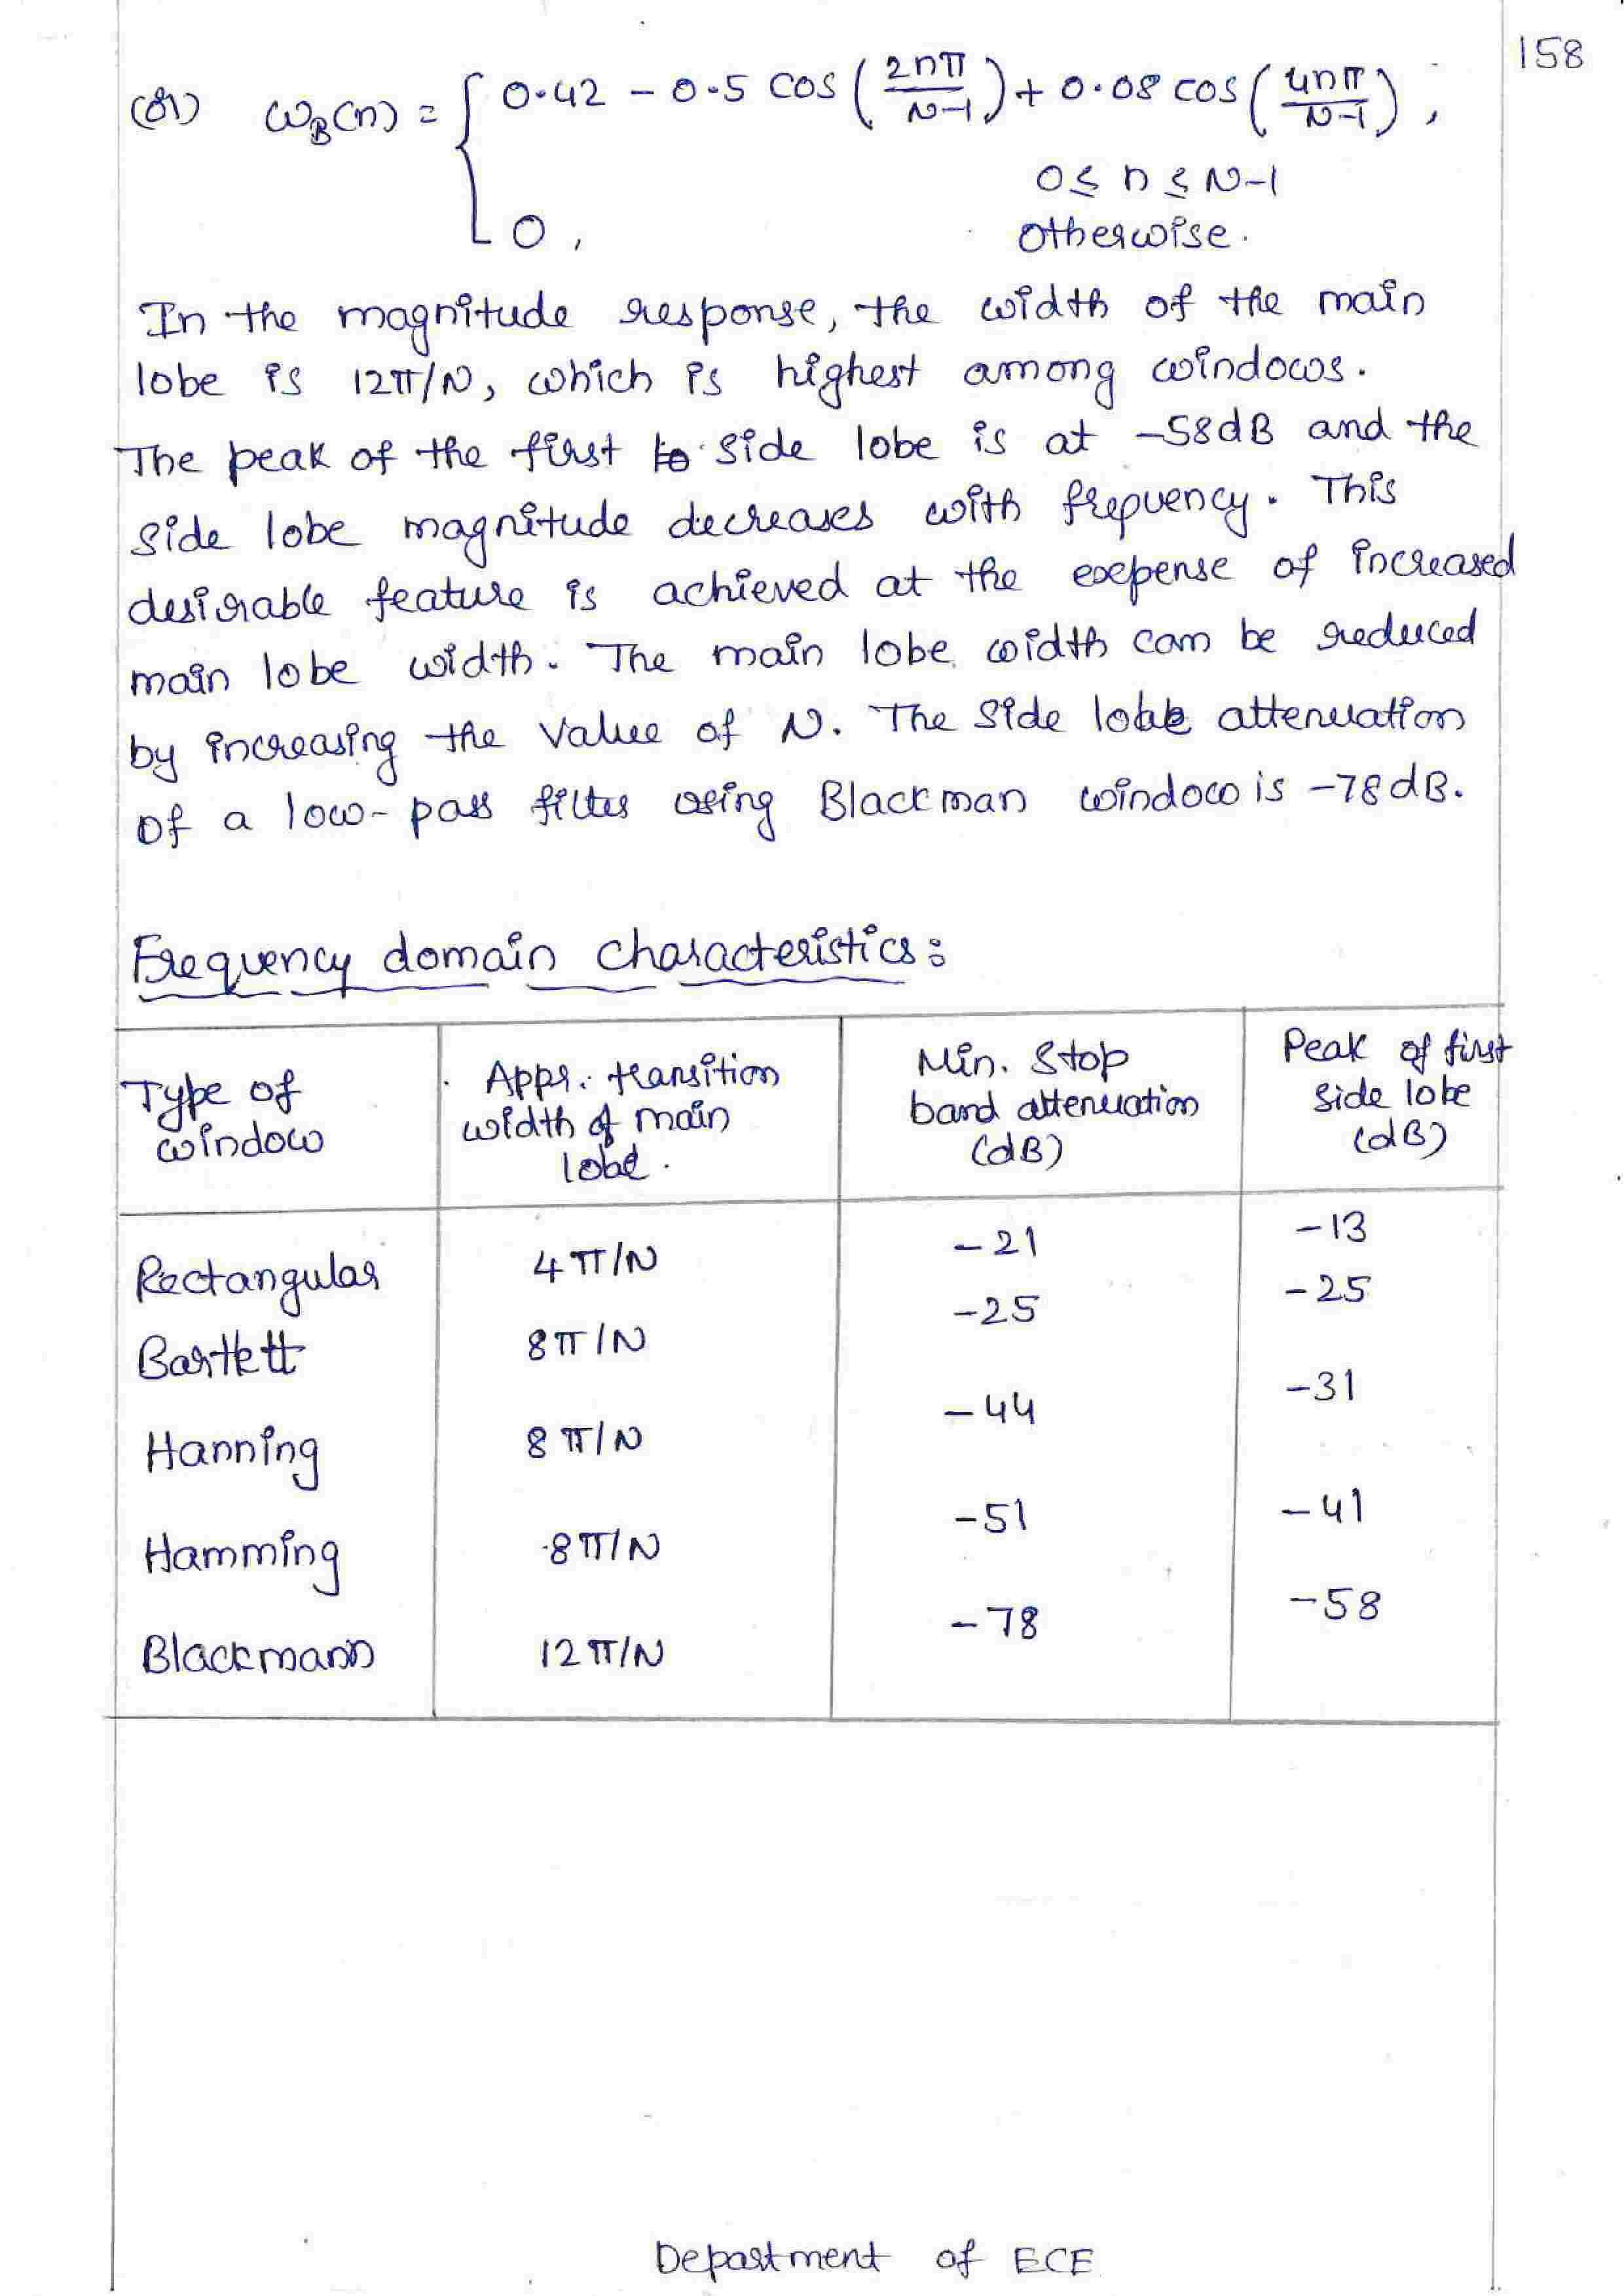 158
(or) ωB(n) = { 0.42 - 0.5 cos(2nπ/N-1) + 0.08 cos(4nπ/N-1) ;
0 ≤ n ≤ N-1
0 , otherwise.
In the magnitude response, the width of the main
lobe is 12π/N, which is highest among windows.
The peak of the first side lobe is at -58dB and the
side lobe magnitude decreases with frequency. This
desirable feature is achieved at the expense of increased
main lobe width. The main lobe width can be reduced
by increasing the value of N. The side lobe attenuation
of a low-pass filter using Blackman window is -78dB.
Frequency domain characteristics:
Type of window | Appr. transition width of main lobe. | Min. Stop band attenuation (dB) | Peak of first side lobe (dB)
Rectangular 4π/N -21 -13
Bartlett 8π/N -25 -25
Hanning 8π/N -44 -31
Hamming 8π/N -51 -41
Blackmann 12π/N -78 -58
Department of ECE